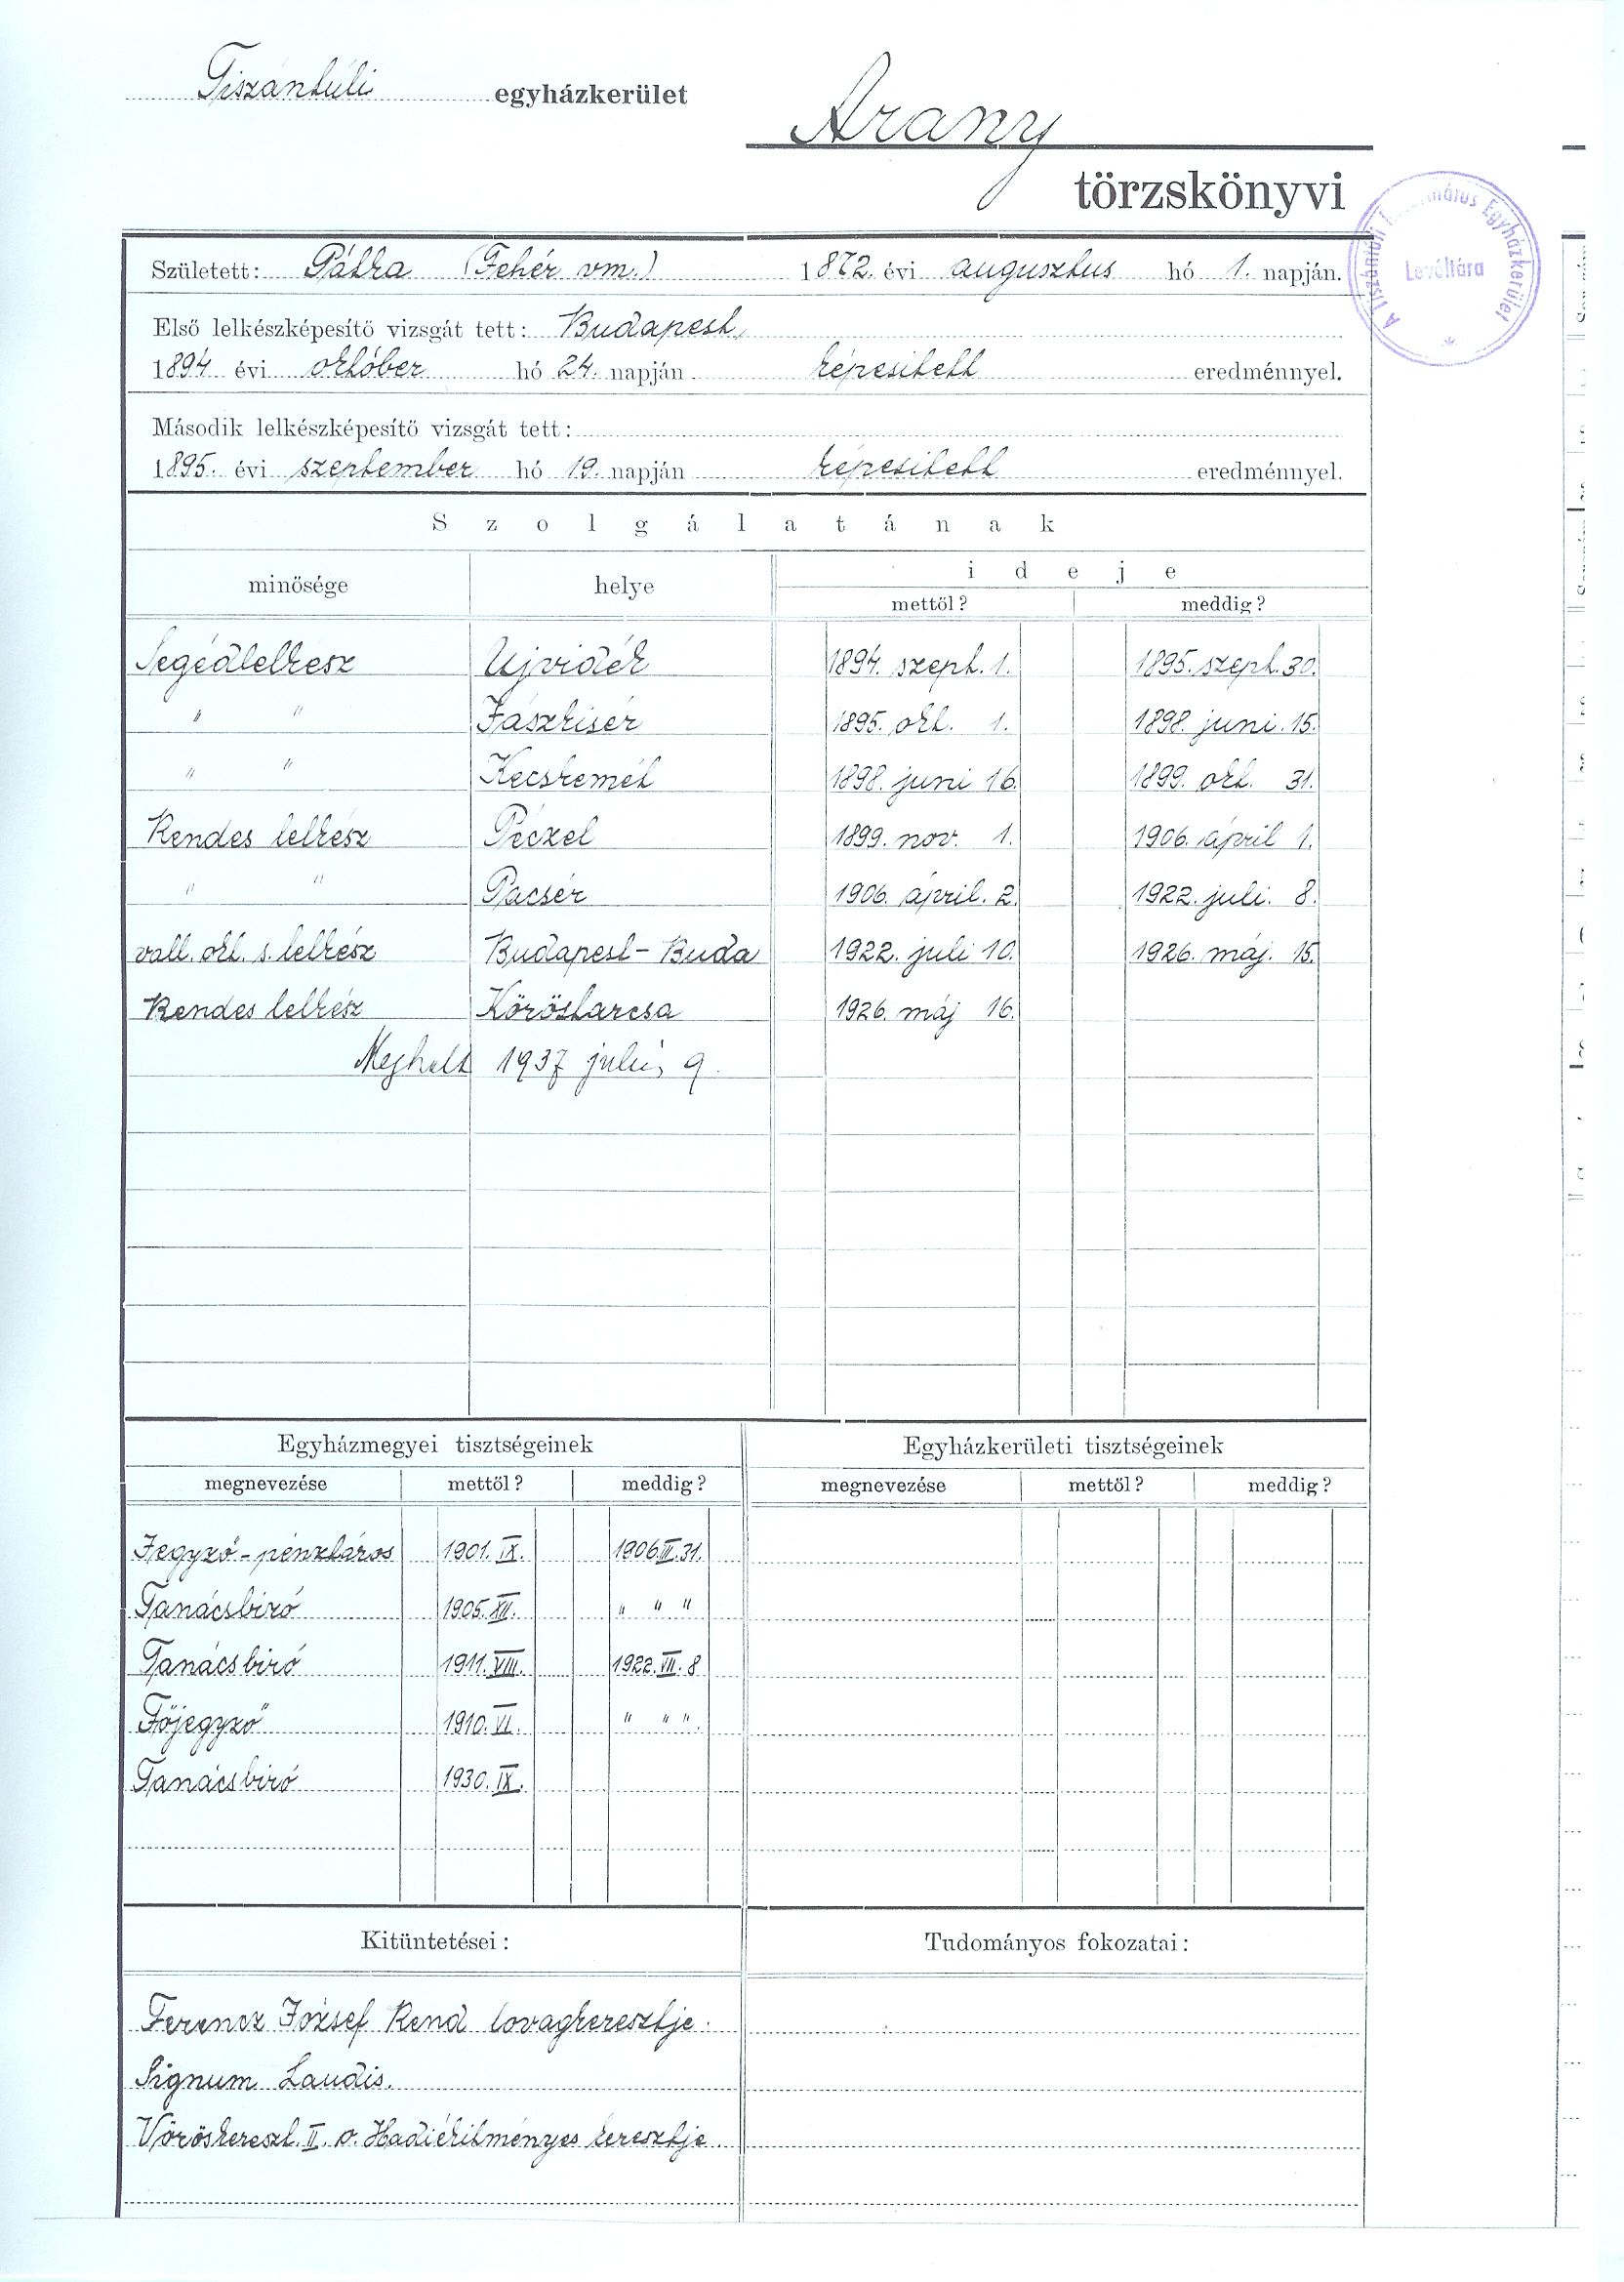 Tiszántúli egyházkerület
Arany
törzskönyvi
A Tiszántúli Református Egyházkerület Levéltára
Született: Pátka (Fehér vm.) 1872. évi augusztus hó 1. napján.
Első lelkészképesítő vizsgát tett: Budapest,
1894 évi október hó 24. napján képesitett eredménnyel.
Második lelkészképesítő vizsgát tett:
1895. évi szeptember hó 19. napján képesitett eredménnyel.
Szolgálatának
minősége helye ideje
mettől? meddig?
Segédlelkész Ujvidék 1894. szept. 1. 1895. szept. 30.
" " Jászkisér 1895. okt. 1. 1898. juni. 15.
" " Kecskemét 1898. juni 16. 1899. okt. 31.
Rendes lelkész Péczel 1899. nov. 1. 1906. ápril 1.
" " Pacsér 1906. ápril. 2. 1922. juli. 8.
vall. okt. s. lelkész Budapest-Buda 1922. juli 10. 1926. máj. 15.
Rendes lelkész Köröstarcsa 1926. máj 16.
Meghalt 1937 július 9.
Egyházmegyei tisztségeinek Egyházkerületi tisztségeinek
megnevezése mettől? meddig? megnevezése mettől? meddig?
Jegyző-pénztáros 1901. IX. 1906. III. 31.
Tanácsbiró 1905. XII. " " "
Tanácsbiró 1911. VIII. 1922. VII. 8
Főjegyző 1910. VI. " " ".
Tanácsbiró 1930. IX.
Kitüntetései: Tudományos fokozatai:
Ferencz József Rend lovagkeresztje.
Signum Laudis.
Vöröskereszt. II. o. Hadiékitményes keresztje.